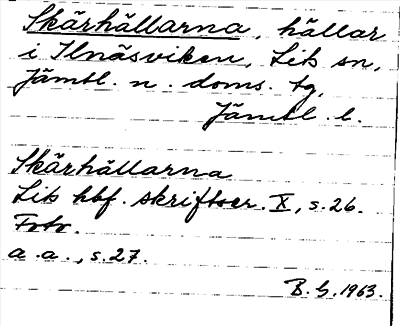 Skärhällarna, hällar
i Ilnäsviken, Lits sn,
Jämtl. n. doms. tg,
Jämtl. l.
Skärhällarna
Lits hbf. skriftser. X, s. 26.
Foto.
a.a., s. 27.
B. G. 1963.